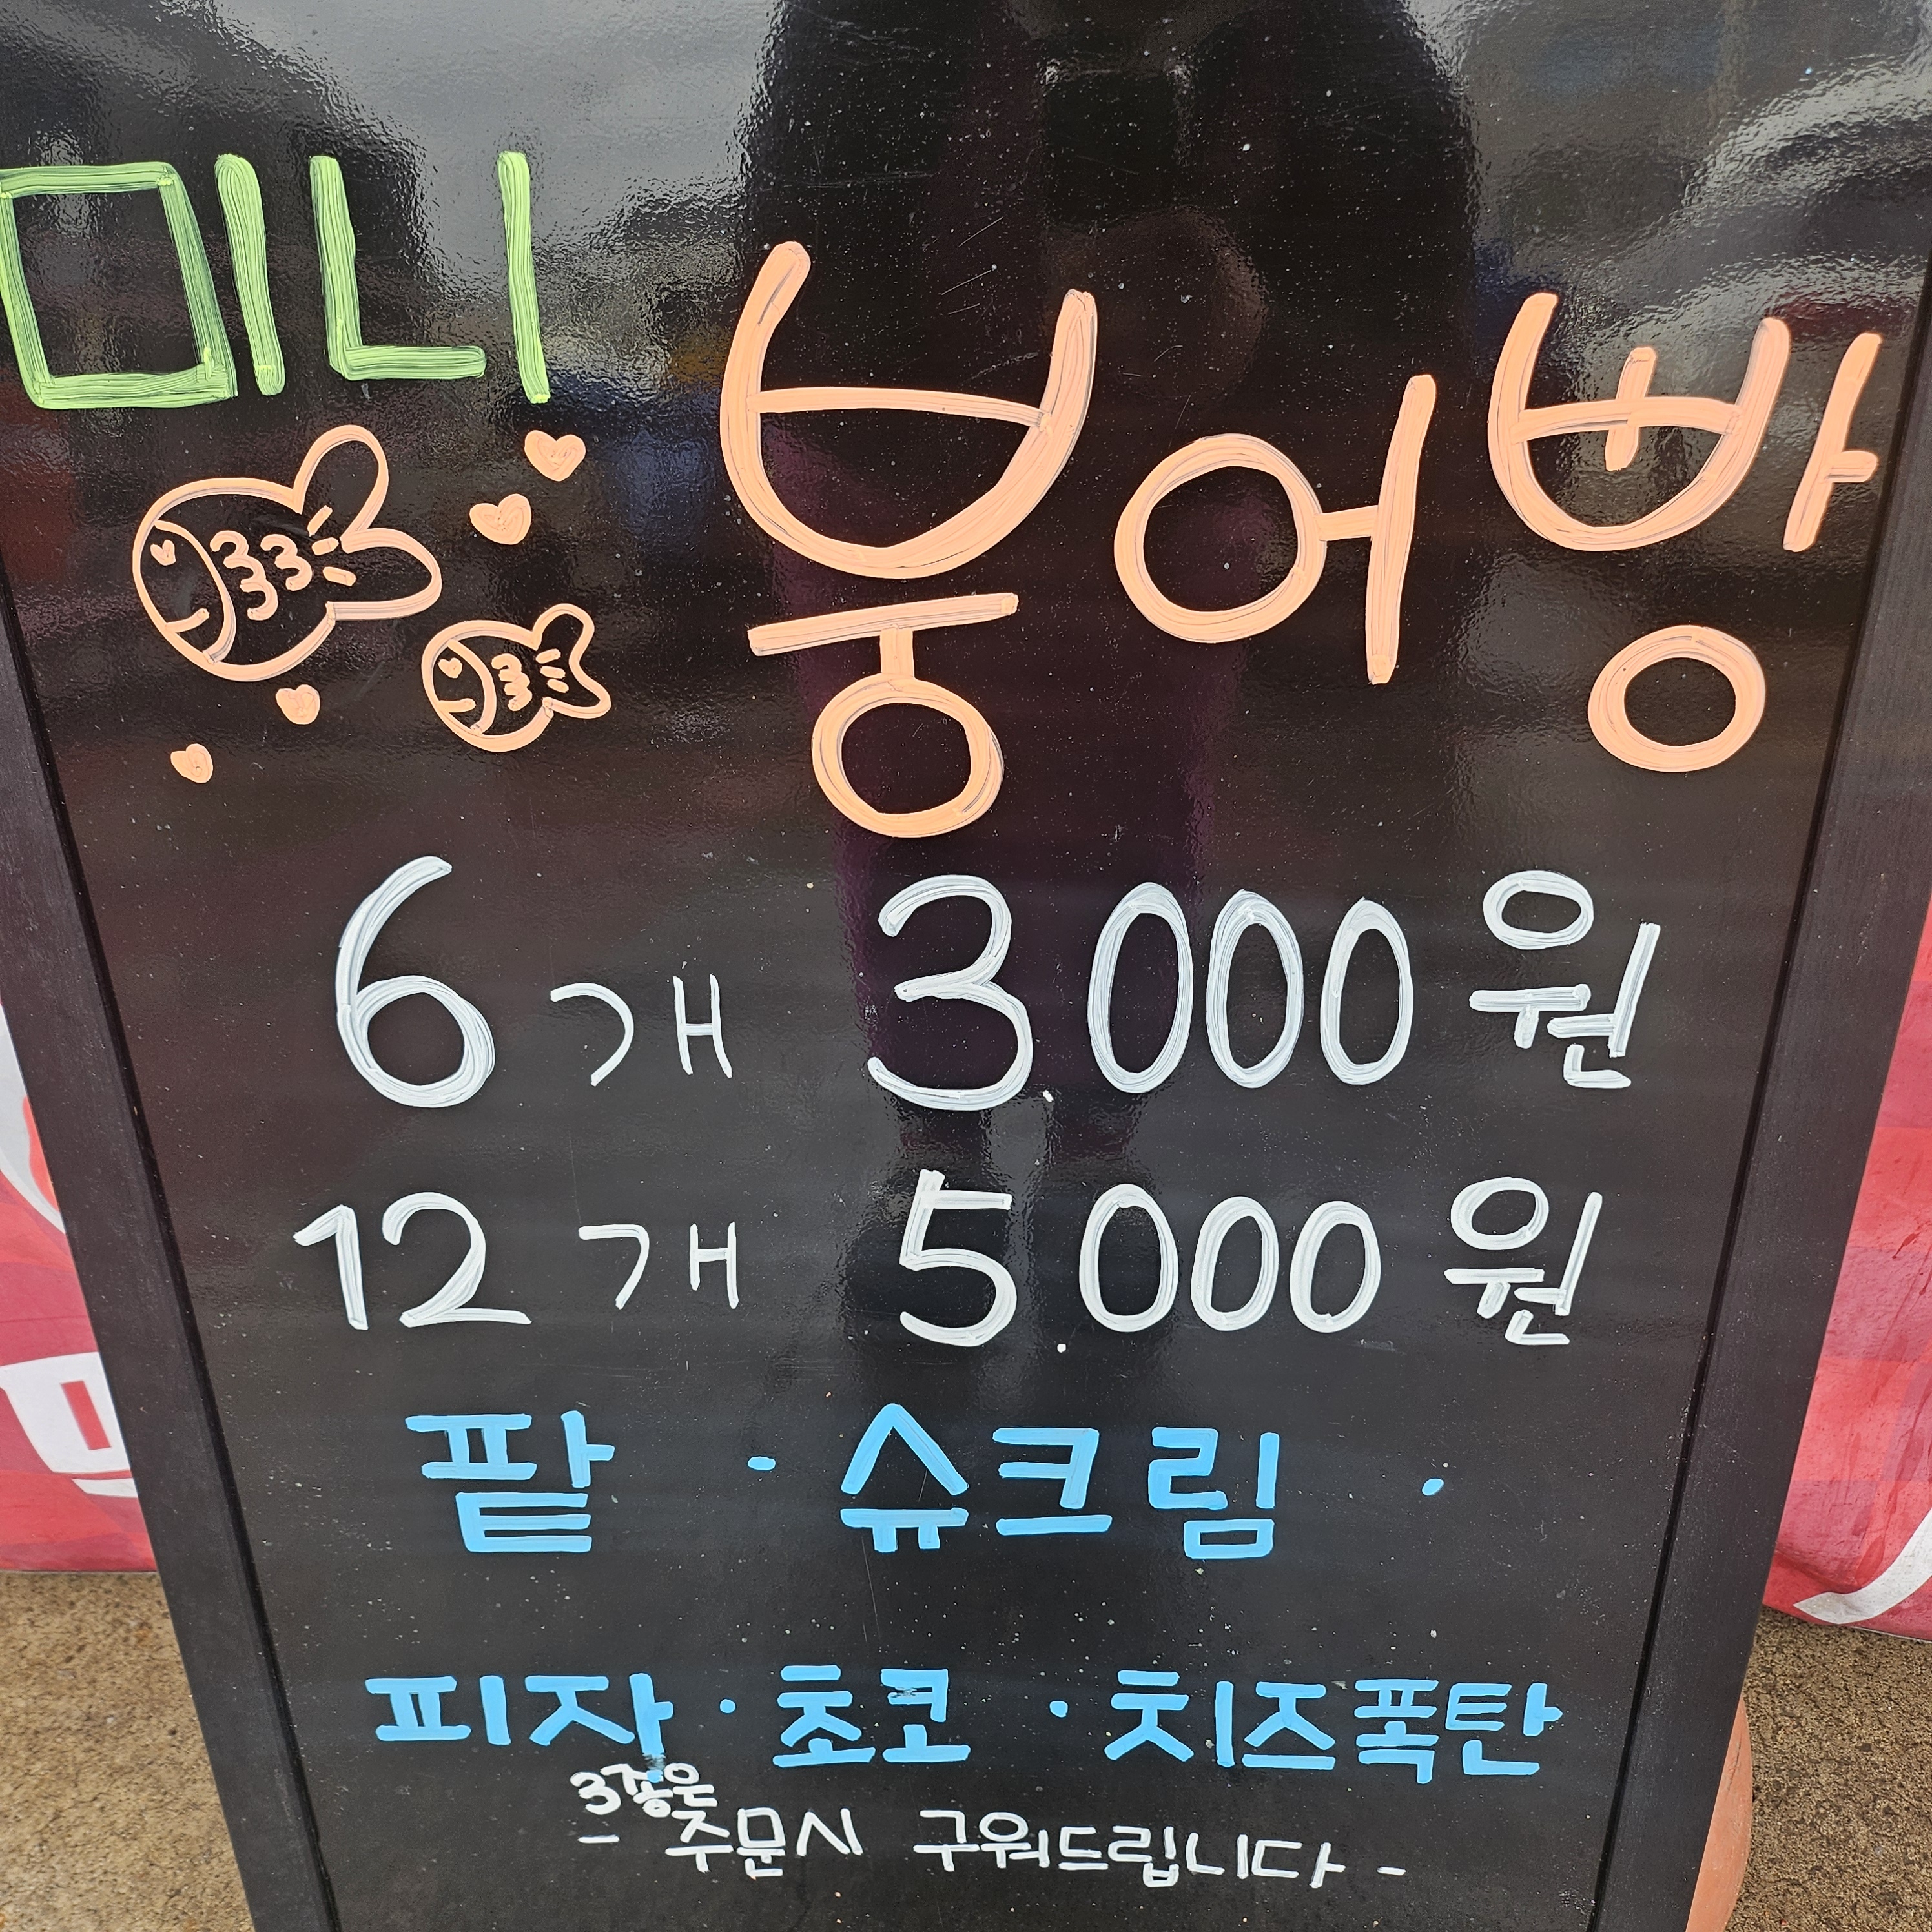 미니
붕어빵
6개 3000원
12개 5000원
팥 · 슈크림 ·
피자 · 초코 · 치즈폭탄
3종은
- 주문시 구워드립니다 -